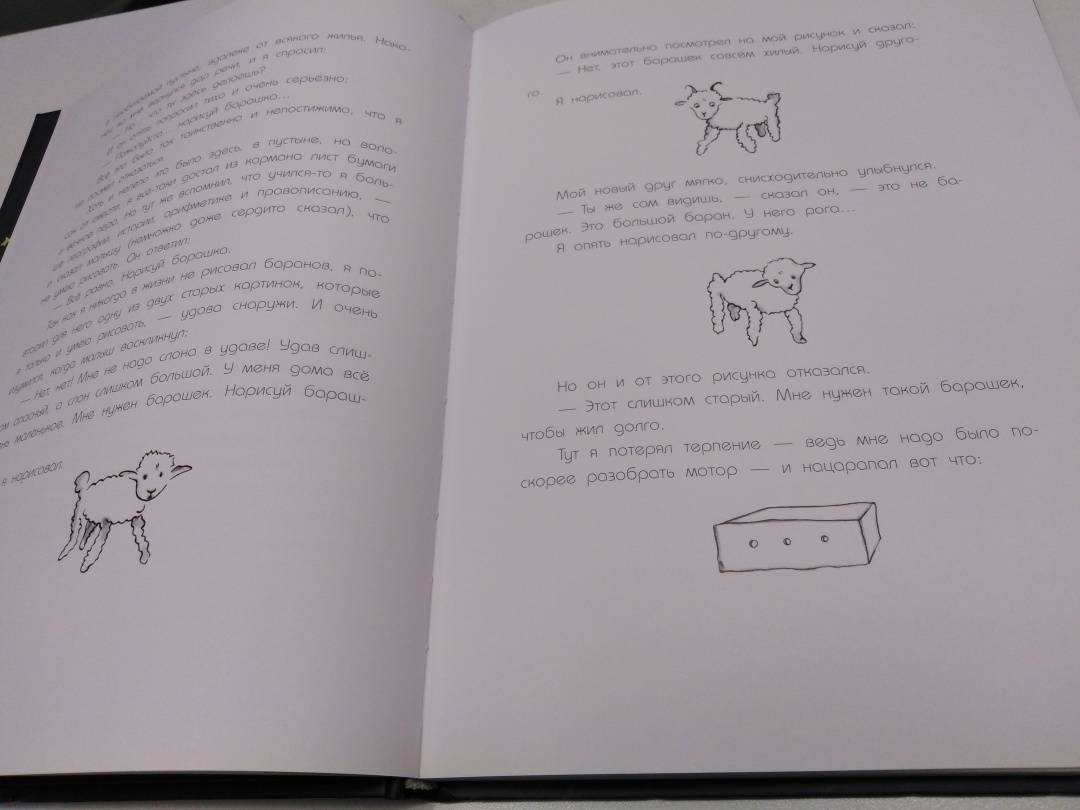 в необитаемой пустыне, вдалеке от всякого жилья. Нако-
нец ко мне вернулся дар речи, и я спросил:
— Но... что ты здесь делаешь?
И он опять попросил тихо и очень серьёзно:
— Пожалуйста... нарисуй барашка...
Всё это было так таинственно и непостижимо, что я
не посмел отказаться.
Хоть и нелепо это было здесь, в пустыне, на воло-
сок от смерти, я всё-таки достал из кармана лист бумаги
и вечное перо. Но тут же вспомнил, что учился-то я боль-
ше географии, истории, арифметике и правописанию, —
и сказал малышу (немножко даже сердито сказал), что
не умею рисовать. Он ответил:
— Всё равно. Нарисуй барашка.
Так как я никогда в жизни не рисовал баранов, я по-
вторил для него одну из двух старых картинок, которые
я только и умею рисовать, — удава снаружи. И очень
изумился, когда малыш воскликнул:
— Нет, нет! Мне не надо слона в удаве! Удав слиш-
ком опасный, а слон слишком большой. У меня дома всё
маленькое. Мне нужен барашек. Нарисуй бараш-
я нарисовал.
Он внимательно посмотрел на мой рисунок и сказал:
— Нет, этот барашек совсем хилый. Нарисуй друго-
го.
Я нарисовал.
Мой новый друг мягко, снисходительно улыбнулся.
— Ты же сам видишь, — сказал он, — это не ба-
рашек. Это большой баран. У него рога...
Я опять нарисовал по-другому.
Но он и от этого рисунка отказался.
— Этот слишком старый. Мне нужен такой барашек,
чтобы жил долго.
Тут я потерял терпение — ведь мне надо было по-
скорее разобрать мотор — и нацарапал вот что: